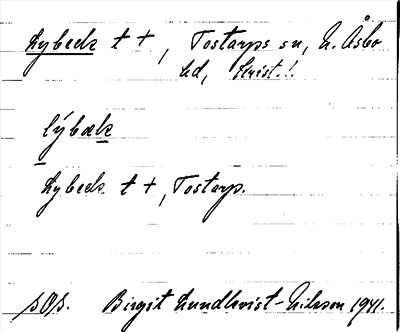 Lybeck t +, Tostarps sn, N. Åsbo
hd, Krist. l.
lýbæk
Lybeck t +, Tostarp.
s. 91.
Birgit Lundkvist-Nilsson 1941.